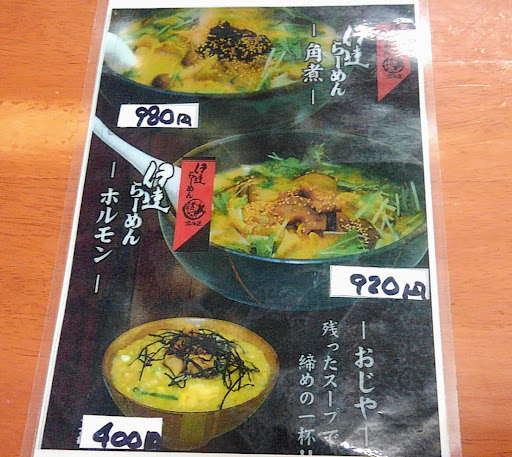 伊達
らーめん
ー角煮ー
980円
伊達
らーめん
ーホルモンー
伊達
らーめん
北海道
920円
ーおじやー
残ったスープで
締めの一杯!!
400円